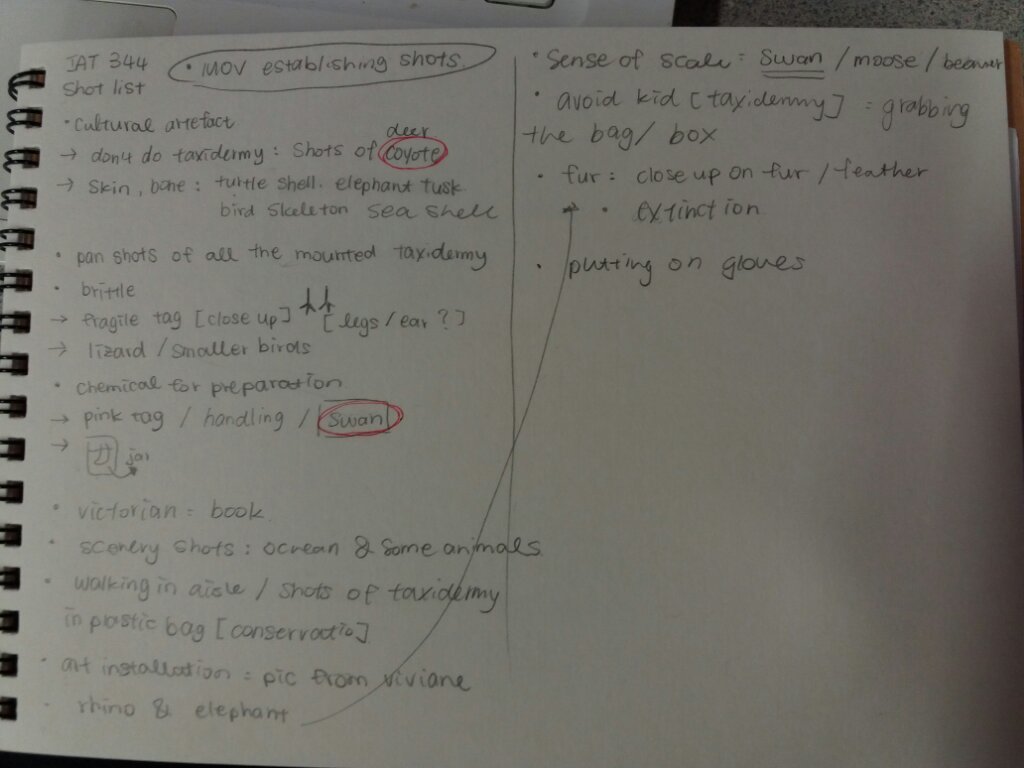 IAT 344
Shot list
• MOV establishing shots.
• Cultural artefact
deer
→ don't do taxidermy: shots of coyote
→ skin, bone: turtle shell. elephant tusk
bird skeleton sea shell
• pan shots of all the mounted taxidermy
• brittle
→ fragile tag [close up] [legs/ear?]
→ lizard / smaller birds
• chemical for preparation
→ pink tag / handling / swan
→ jar
• victorian = book
• scenery shots: ocrean & some animals
• walking in aisle / shots of taxidermy
in plastic bag [conservatio]
• art installation = pic from viviane
• rhino & elephant
• sense of scale: swan / moose / beaver
• avoid kid [taxidermy] = grabbing
the bag/ box
• fur: close up on fur / feather
→ • extinction
• putting on gloves